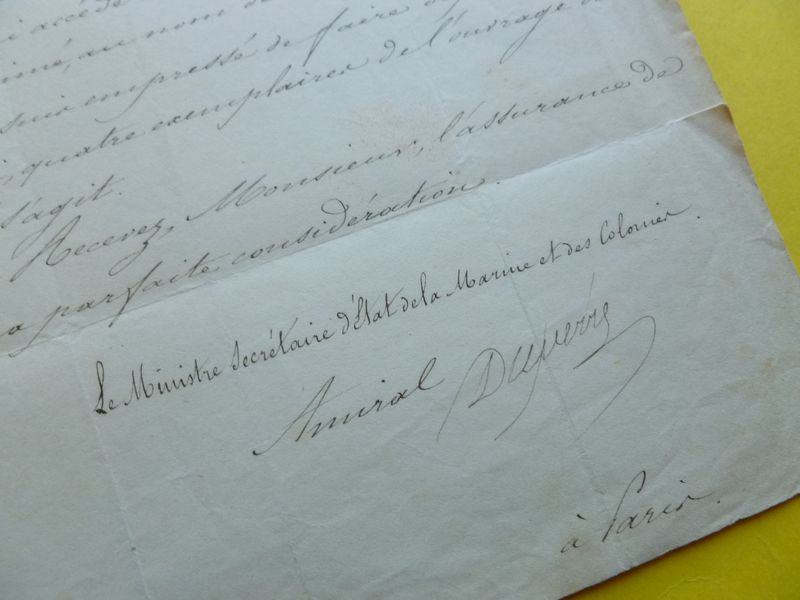 i accède
au nom de
suis empressé de faire
quatre exemplaires de l'ouvrage
s'agit.
Recevez, Monsieur, l'assurance de
a parfaite considération.
Le Ministre Secrétaire d'État de la Marine et des Colonies.
Amiral Duperré
à Paris.